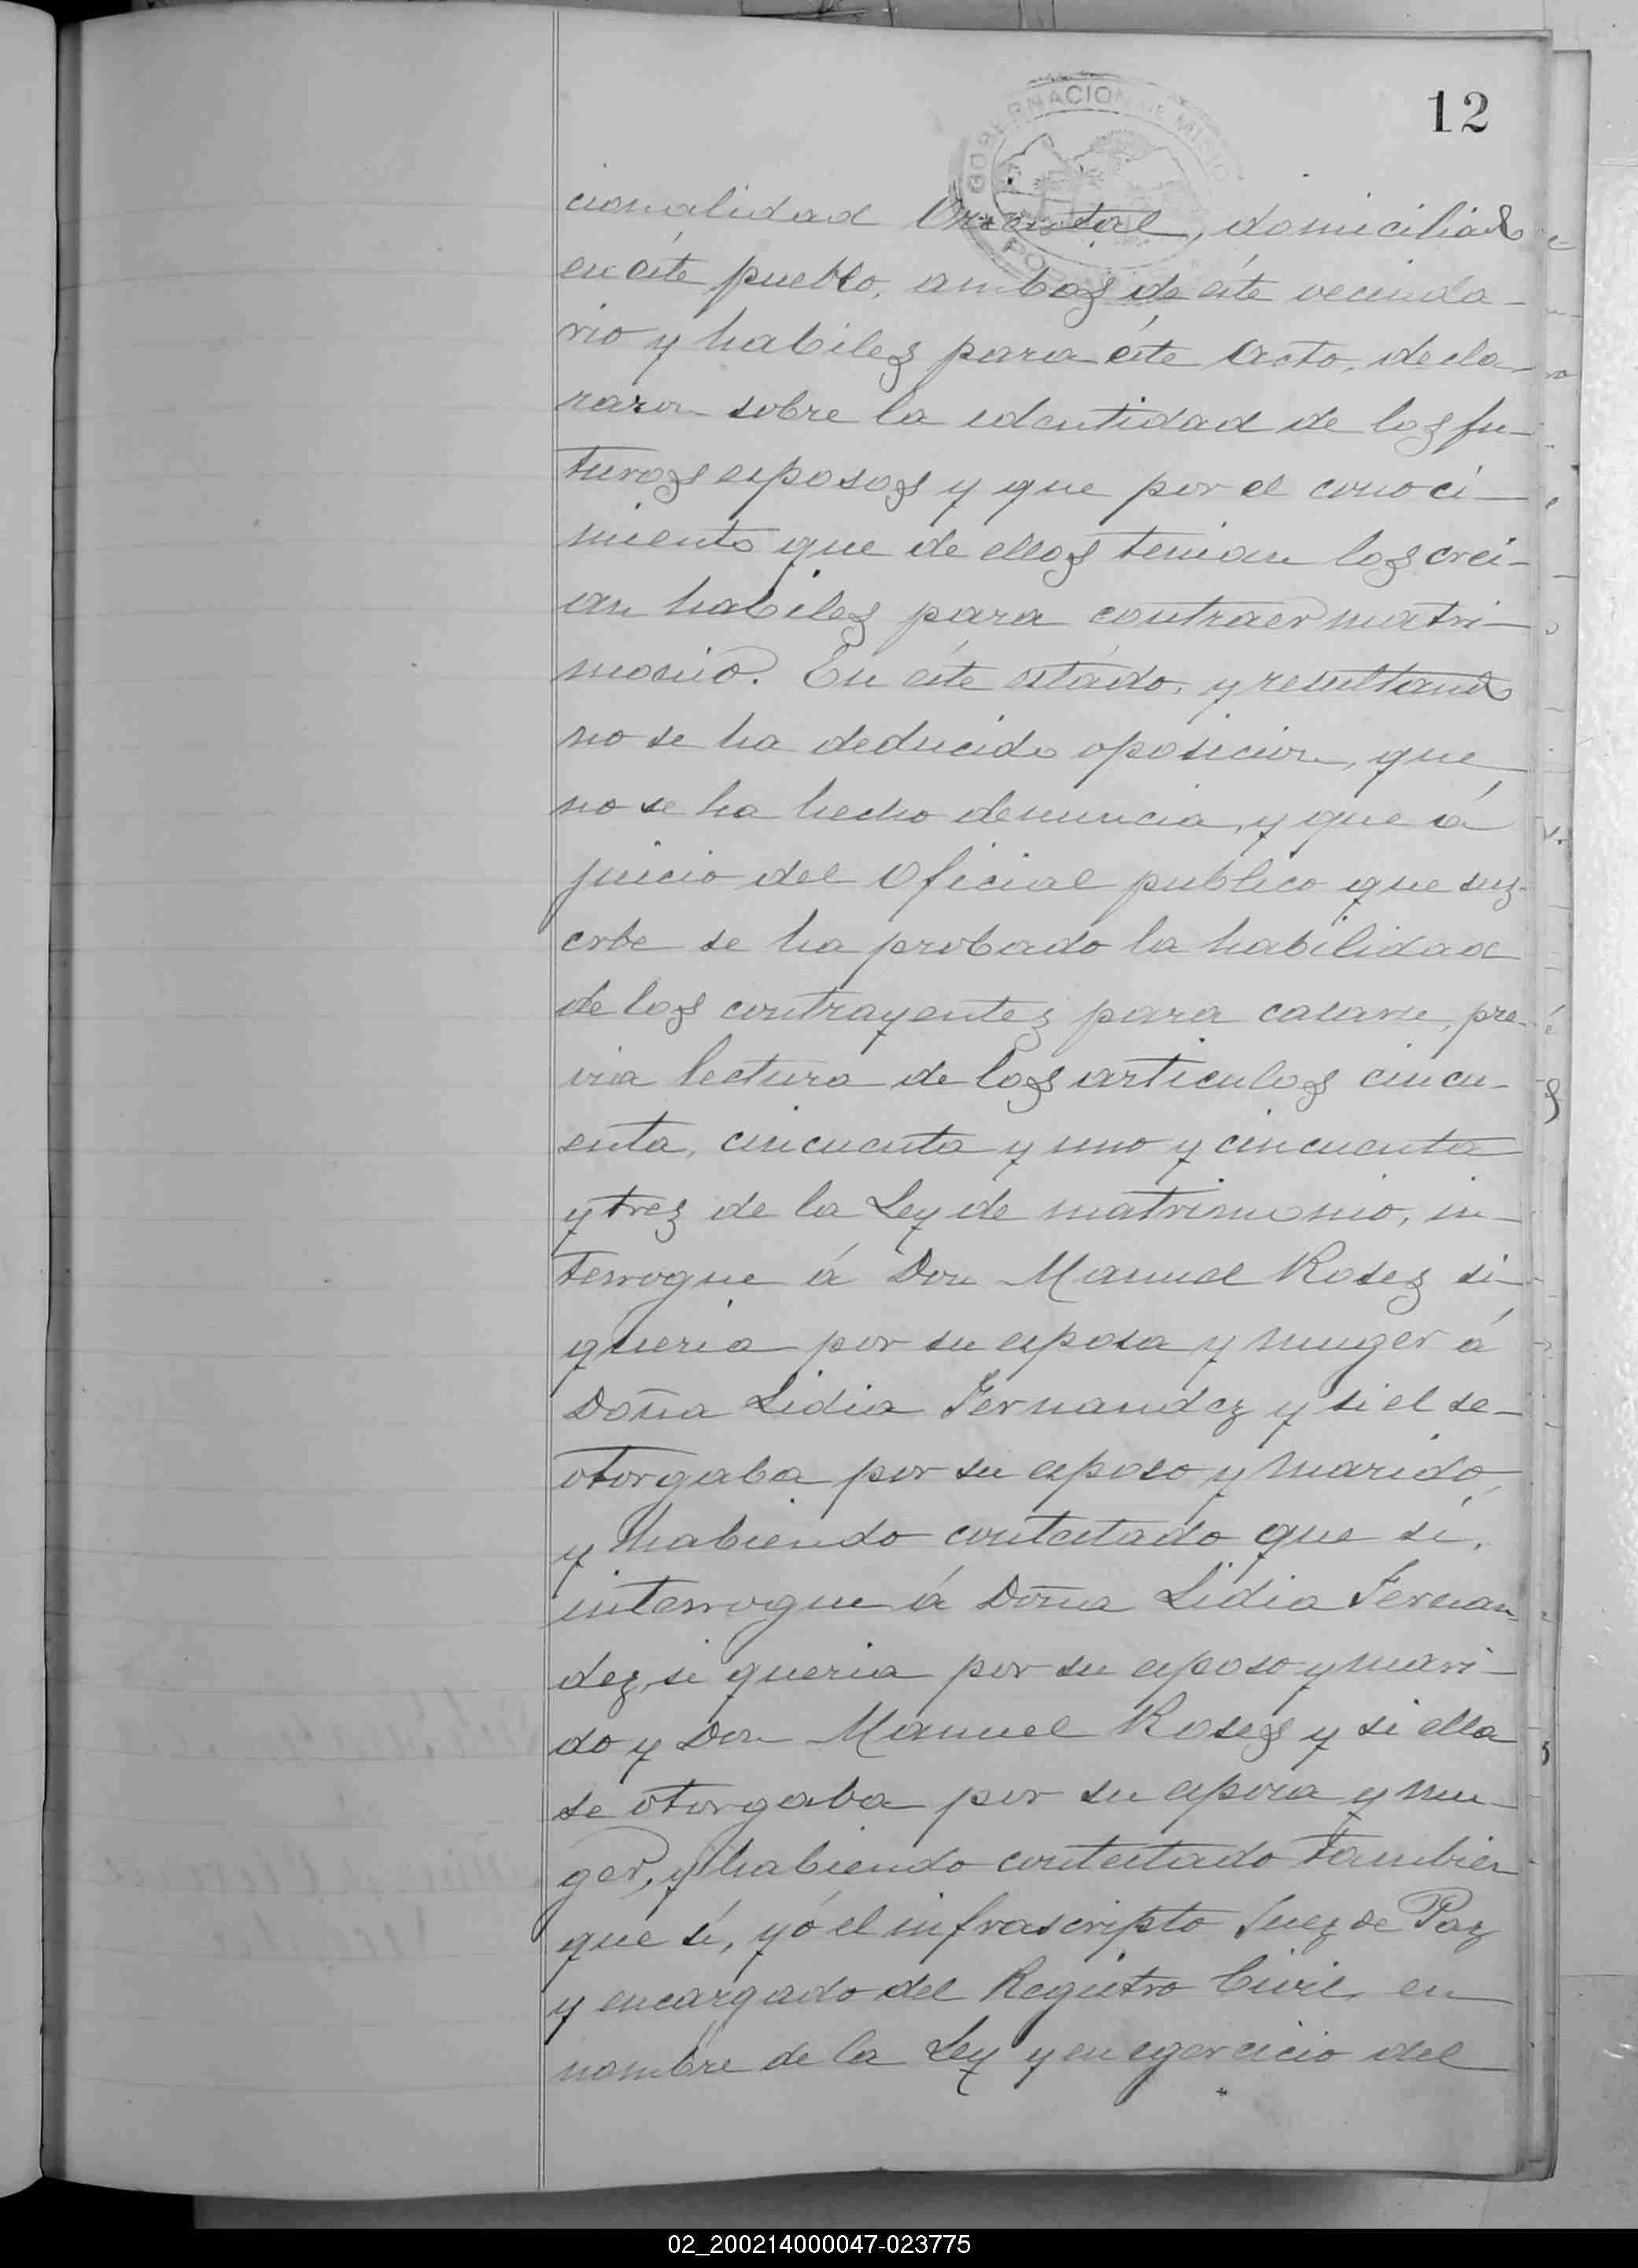 12
GOBERNACION DE MISIO
PO
cionalidad Oriental, domiciliado
en éste pueblo, ambos de éste vecinda-
rio y habiles para éste Acto, decla-
raron sobre la identidad de los fu-
turos esposos y que por el conoci-
miento que de ellos tenian los crei-
an habiles para contraer matri-
monio. En éste estádo, y resultando
no se ha deducido oposicion, que
no se ha hecho denuncia, y que á
juicio del Oficial publico que sus-
crbe se ha probado la habilidad
de los contrayentes para casarse, pre-
via lectura de los articulos cincu-
enta, cincuenta y uno y cincuenta
y tres de la Ley de matrimonio, in-
terrogue á Don Manuel Roses si
queria por su esposa y muger á
Doña Lidia Fernandez y si el se
otorgaba por su esposo y marido,
y habiendo contestado que sí,
interrogue á Doña Lidia Fernan-
dez, si queria por su esposo y mari-
do y Don Manuel Roses y si ella
se otorgaba por su esposa y mu-
ger, y habiendo contestado tambien
que sí, yó el infrascripto Juez de Paz
y encargado del Registro Civil, en
nombre de la Ley y en egercicio del
02_200214000047-023775